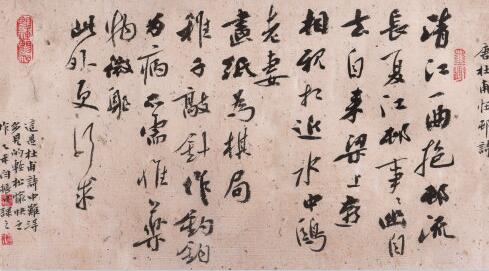 唐杜甫江邨詩
清江一曲抱邨流
長夏江邨事々幽自
去自来梁上燕
相親相近水中鷗
老妻
畫紙為棋局
稚子敲針作釣鉤
多病所需惟藥
物微軀
此外更何求
這是杜甫詩中難得
多見的輕松愉快之
作